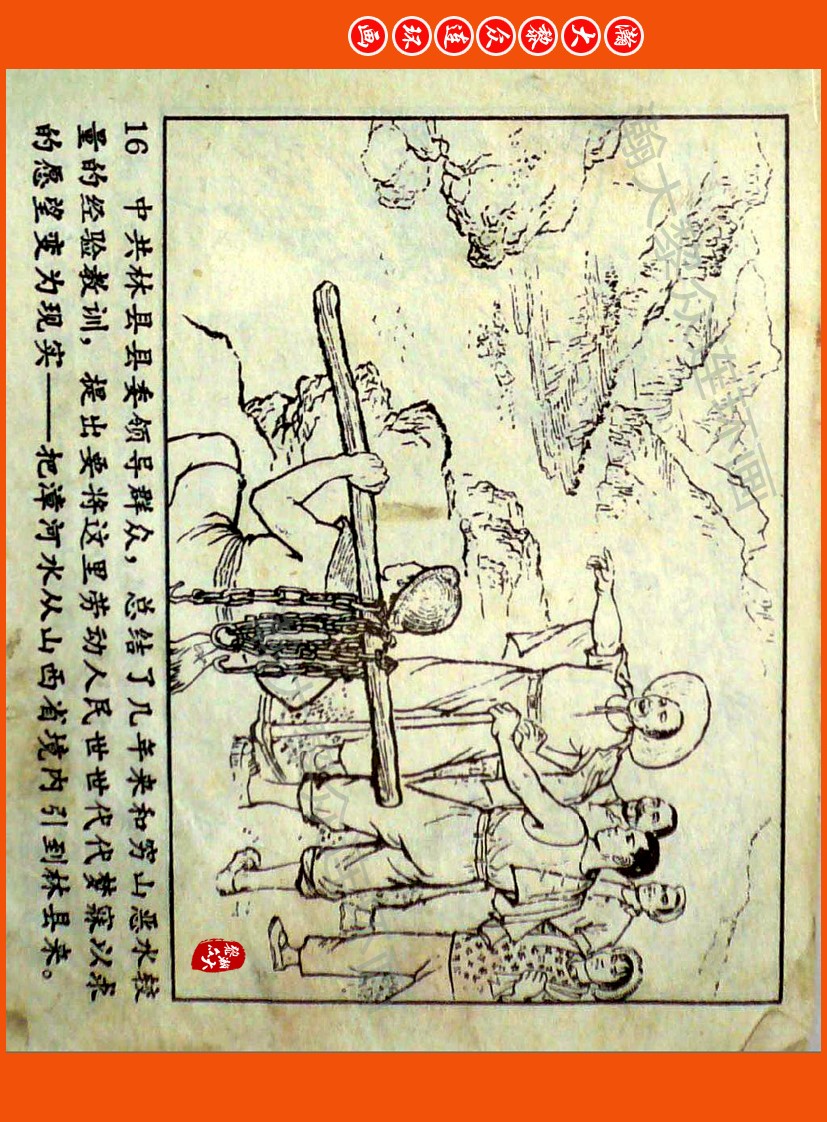 瀚大黎众连环画
16 中共林县县委领导群众，总结了几年来和穷山恶水较
量的经验教训，提出要将这里劳动人民世世代代梦寐以求
的愿望变为现实——把漳河水从山西省境内引到林县来。
瀚大黎众连环画